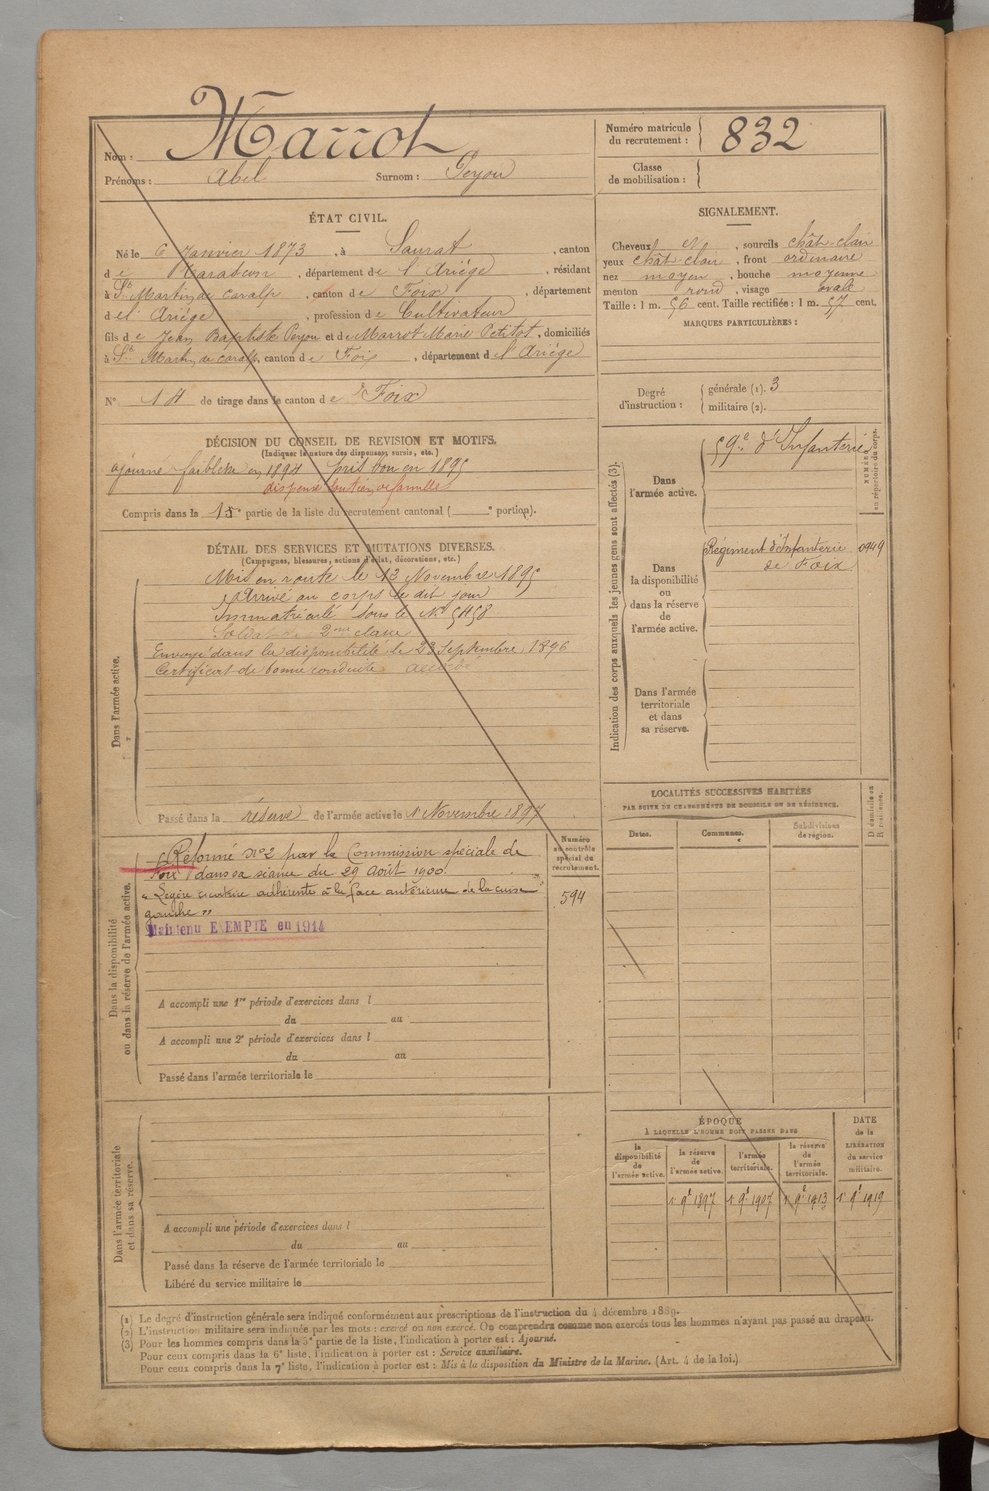 Nom : Marrot
Prénoms : Abel Surnom : Peyou
Numéro matricule du recrutement : 832
Classe de mobilisation :
ÉTAT CIVIL.
Né le 6 Janvier 1873, à Saurat, canton
de Tarascon, département de l'Ariège, résidant
à St Martin de Caralp, canton de Foix, département
de l'Ariège, profession de Cultivateur
fils de Jean Baptiste Peyou et de Marrot Marie Petitot, domiciliés
à St Martin de Caralp, canton de Foix, département d l'Ariège
N° 14 de tirage dans le canton de Foix
DÉCISION DU CONSEIL DE REVISION ET MOTIFS.
(Indiquer la nature des dispenses, sursis, etc.)
ajourné faiblesse en 1894 pris bon en 1895
dispensé soutien de famille
Compris dans la 1e partie de la liste du recrutement cantonal ( e portion).
DÉTAIL DES SERVICES ET MUTATIONS DIVERSES.
(Campagnes, blessures, actions d'éclat, décorations, etc.)
Dans l'armée active.
Mis en route le 13 Novembre 1895
Arrivé au corps le dit jour
Immatriculé sous le N°
Soldat de 2me classe
Envoyé dans la disponibilité le 23 Septembre 1896
Certificat de bonne conduite accordé
Passé dans la réserve de l'armée active le 1 Novembre 1897
Dans la disponibilité
ou dans la réserve de l'armée active.
Réformé n°2 par la Commission spéciale de
Foix dans sa séance du 29 Août 1900.
" Légère cicatrice adhérente à la face antérieure de la cuisse
gauche "
Maintenu EXEMPTE en 1914
Numéro
au contrôle
spécial du
recrutement.
594
A accompli une 1re période d'exercices dans l
du au
A accompli une 2e période d'exercices dans l
du au
Passé dans l'armée territoriale le
Dans l'armée territoriale
et dans sa réserve.
A accompli une période d'exercices dans l
du au
Passé dans la réserve de l'armée territoriale le
Libéré du service militaire le
SIGNALEMENT.
Cheveux , sourcils chât-clair
yeux chât clair, front ordinaire
nez moyen, bouche moyenne
menton rond, visage ovale
Taille : 1 m. 56 cent. Taille rectifiée : 1 m. 57 cent.
MARQUES PARTICULIÈRES :
Degré
d'instruction :
générale (1). 3
militaire (2).
Indication des corps auxquels les jeunes gens sont affectés (3).
NUMÉRO
au répertoire du corps.
Dans
l'armée active.
59e d'Infanterie
Dans
la disponibilité
ou
dans la réserve
de
l'armée active.
Régiment d'Infanterie
de Foix
0949
Dans l'armée
territoriale
et dans
sa réserve.
LOCALITÉS SUCCESSIVES HABITÉES
PAR SUITE DE CHANGEMENTS DE DOMICILE OU DE RÉSIDENCE.
Dates.
Communes.
Subdivisions
de région.
D domicile ou
R résidence.
ÉPOQUE
À LAQUELLE L'HOMME DOIT PASSER DANS
DATE
de la
LIBÉRATION
du service
militaire.
la
disponibilité
de
l'armée active.
la réserve
de
l'armée active.
l'armée
territoriale.
la réserve
de
l'armée
territoriale.
1 9e 1897
1 9e 1907
1 9e 1913
1 9e 1919
(1) Le degré d'instruction générale sera indiqué conformément aux prescriptions de l'instruction du 4 décembre 1889.
(2) L'instruction militaire sera indiquée par les mots : exercé ou non exercé. On comprendra comme non exercés tous les hommes n'ayant pas passé au drapeau.
(3) Pour les hommes compris dans la 5e partie de la liste, l'indication à porter est : Ajourné.
Pour ceux compris dans la 6e liste, l'indication à porter est : Service auxiliaire.
Pour ceux compris dans la 7e liste, l'indication à porter est : Mis à la disposition du Ministre de la Marine. (Art. 4 de la loi.)